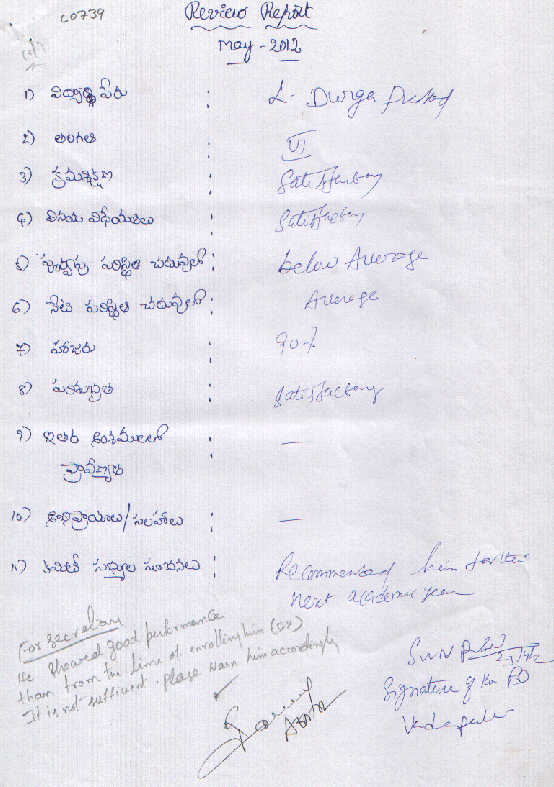 C0739
Review Report
May - 2012
1) విద్యార్థి పేరు : L. Durga Prasad
2) తరగతి : VI
3) క్రమశిక్షణ : Satisfactory
4) వినయ విధేయతలు : Satisfactory
5) పూర్వపు పరిస్థితి చదువులో : below Average
6) నేటి పరిస్థితి చదువులో : Average
7) హాజరు : 90%
8) పరిశుభ్రత : Satisfactory
9) ఇతర అంశములలో : —
ప్రావీణ్యత
10) అభిప్రాయాలు/సలహాలు : —
11) కమిటీ సభ్యుల సూచనలు : Recommended him for the
next academic year
For Secretary
He showed good performance
than from the time of enrolling him (or)
It is not sufficient. please warn him accordingly
Signature of the PO